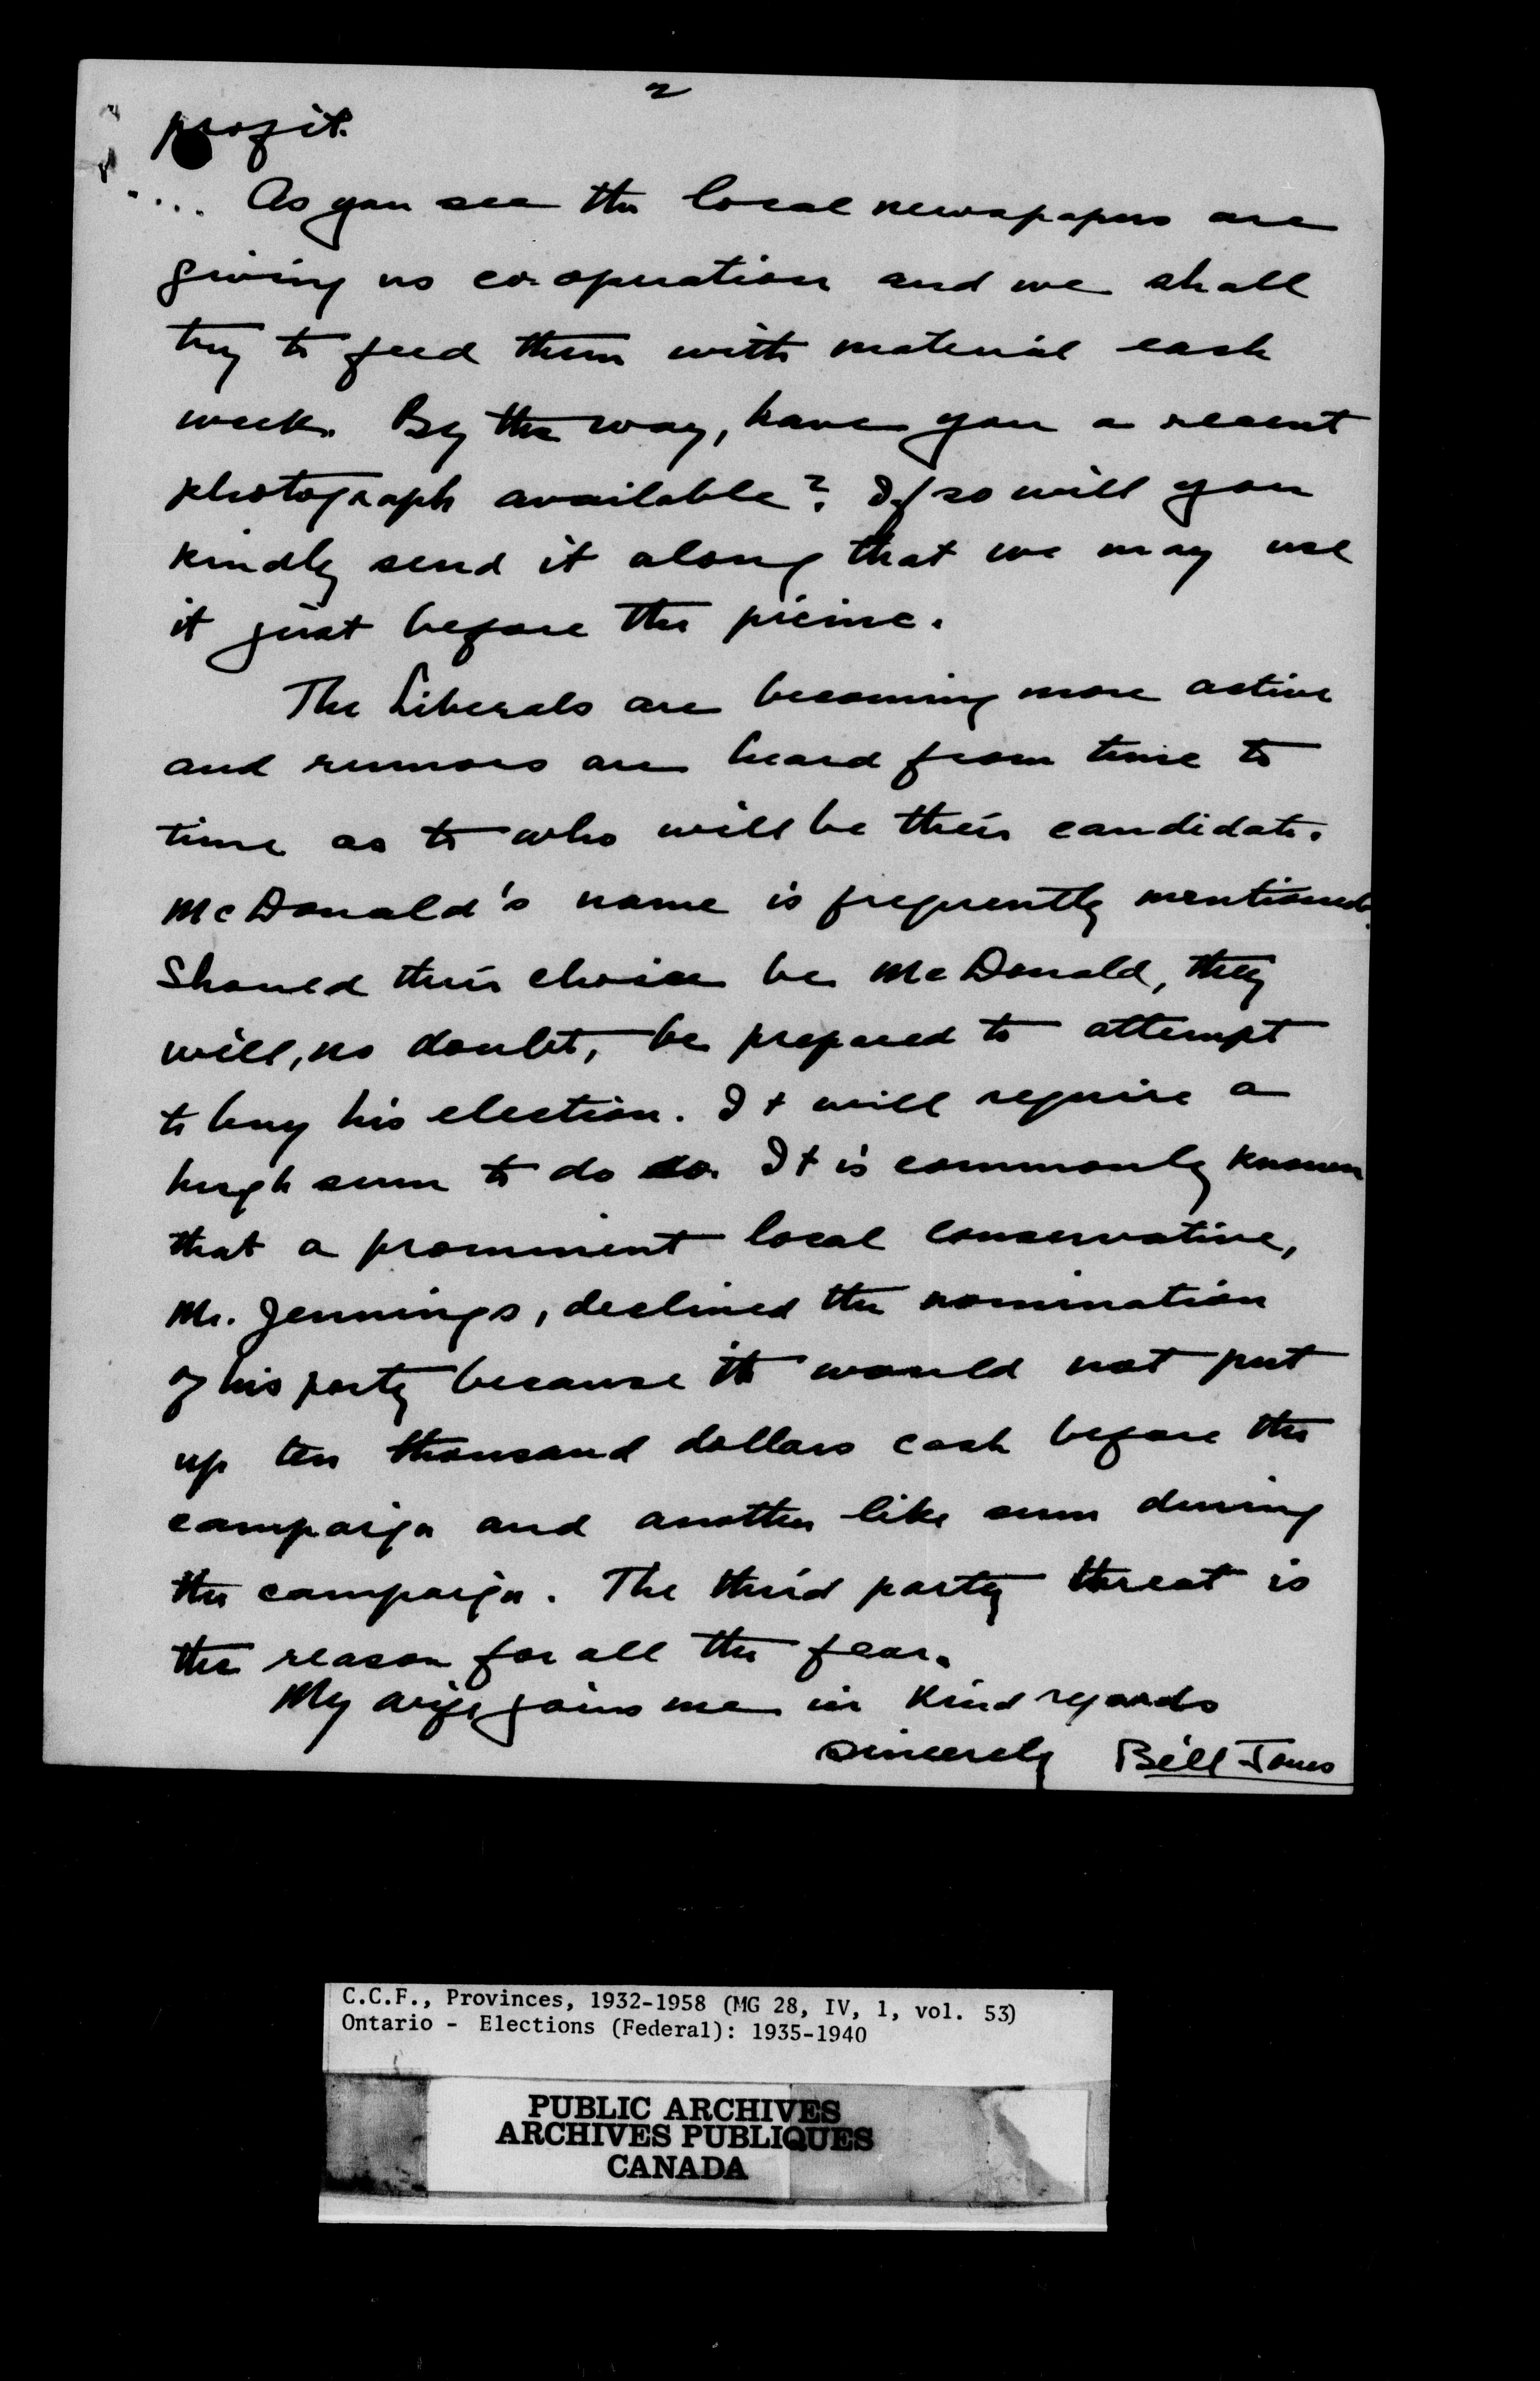 2
profit.
.... As you see the local newspapers are
giving us co-operation and we shall
try to feed them with material each
week. By the way, have you a recent
photograph available? If so will you
kindly send it along that we may use
it just before the picinc.
The Liberals are becoming more active
and rumors are heard from time to
time as to who will be their candidate.
McDonald's name is frequently mentioned.
Should their choice be McDonald, they
will, no doubt, be prepared to attempt
to buy his election. It will require a
hugh sum to do so. It is commonly known
that a prominent local conservative,
Mr. Jennings, declined the nomination
of his party because it would not put
up ten thousand dollars cash before the
campaign and another like sum during
the campaign. The third party threat is
the reason for all the fear.
My wife joins me in kind regards
sincerely Bill Jones
C.C.F., Provinces, 1932-1958 (MG 28, IV, 1, vol. 53)
Ontario - Elections (Federal): 1935-1940
PUBLIC ARCHIVES
ARCHIVES PUBLIQUES
CANADA